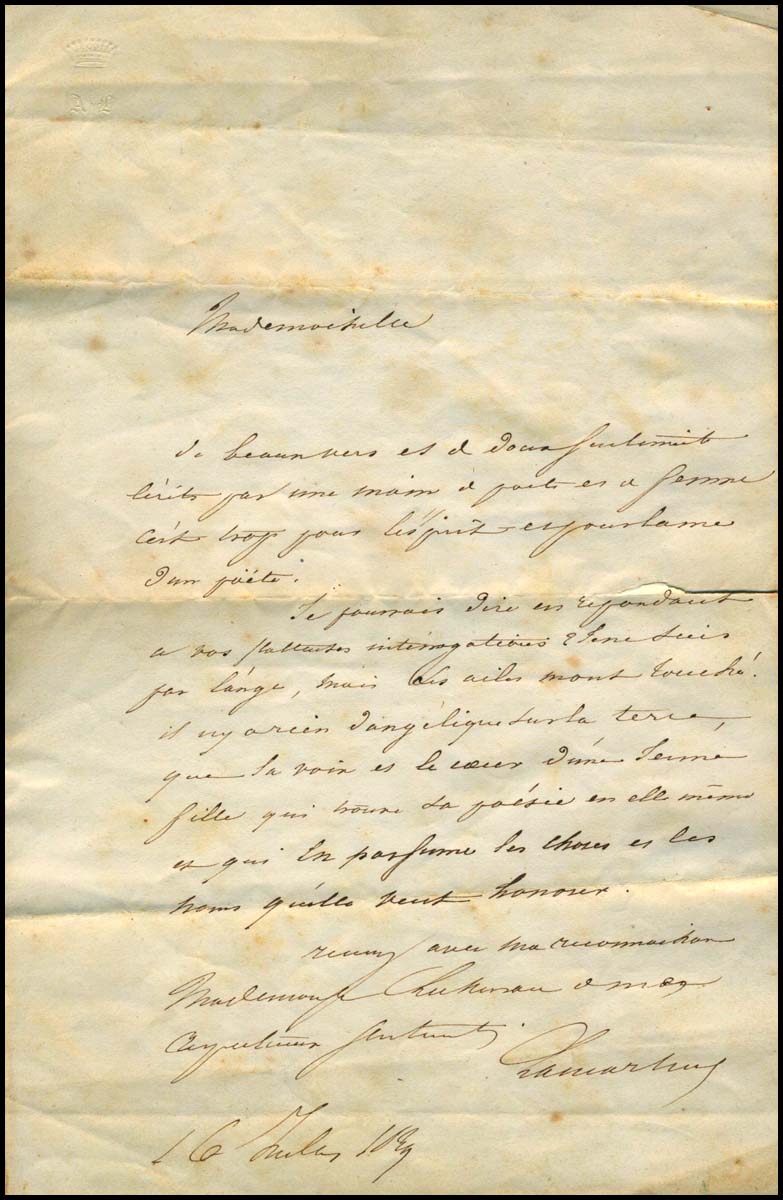 A L
Mademoiselle
de beaux vers et de doux sentiments
écrits par une main de poète et de femme
c'est trop pour l'esprit et pour l'ame
d'un poëte.
Je pourrais dire en repondant
a vos flatteuses intérrogations? Je ne suis
pas l'ange, mais ses ailes m'ont touché.
il n'y a rien d'angélique sur la terre,
que la voix et le cœur d'une Jeune
fille qui trouve sa poésie en elle même
et qui en parfume les choses et les
noms qu'elle veut honorer.
recevez avec ma reconnaissance
Mademoiselle de mes
respectueux sentiments
Lamartine
16 Juillet